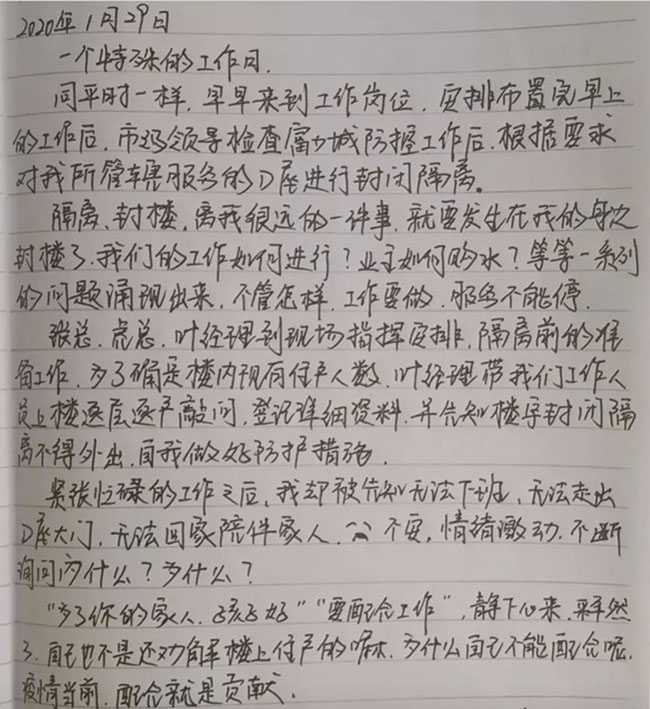 2020年1月29日
一个特殊的工作日.
同平时一样,早早来到工作岗位,安排布置完早上
的工作后,市场领导检查富力城防控工作后,根据要求
对我所管辖服务的D座进行封闭隔离。
隔离、封楼,离我很远的一件事,就要发生在我的身边
封楼了,我们的工作如何进行?业主如何购水?等等一系列
的问题涌现出来,不管怎样,工作要做,服务不能停.
张总、虎总、叶经理到现场指挥安排,隔离前的准
备工作,为了确定楼内现有住户人数,叶经理带我们工作人
员上楼逐层逐户敲问,登记详细资料,并告知楼宇封闭隔
离不得外出,自我做好防护措施.
紧张忙碌的工作之后,我却被告知无法下班,无法走出
D座大门,无法回家陪伴家人,不安,情绪激动,不断
询问为什么?为什么?
“为了你的家人、孩子好”“要配合工作”,静下心来,释然
了,自己也不是还劝解楼上住户的嘛,为什么自己不能配合呢,
疫情当前,配合就是贡献.